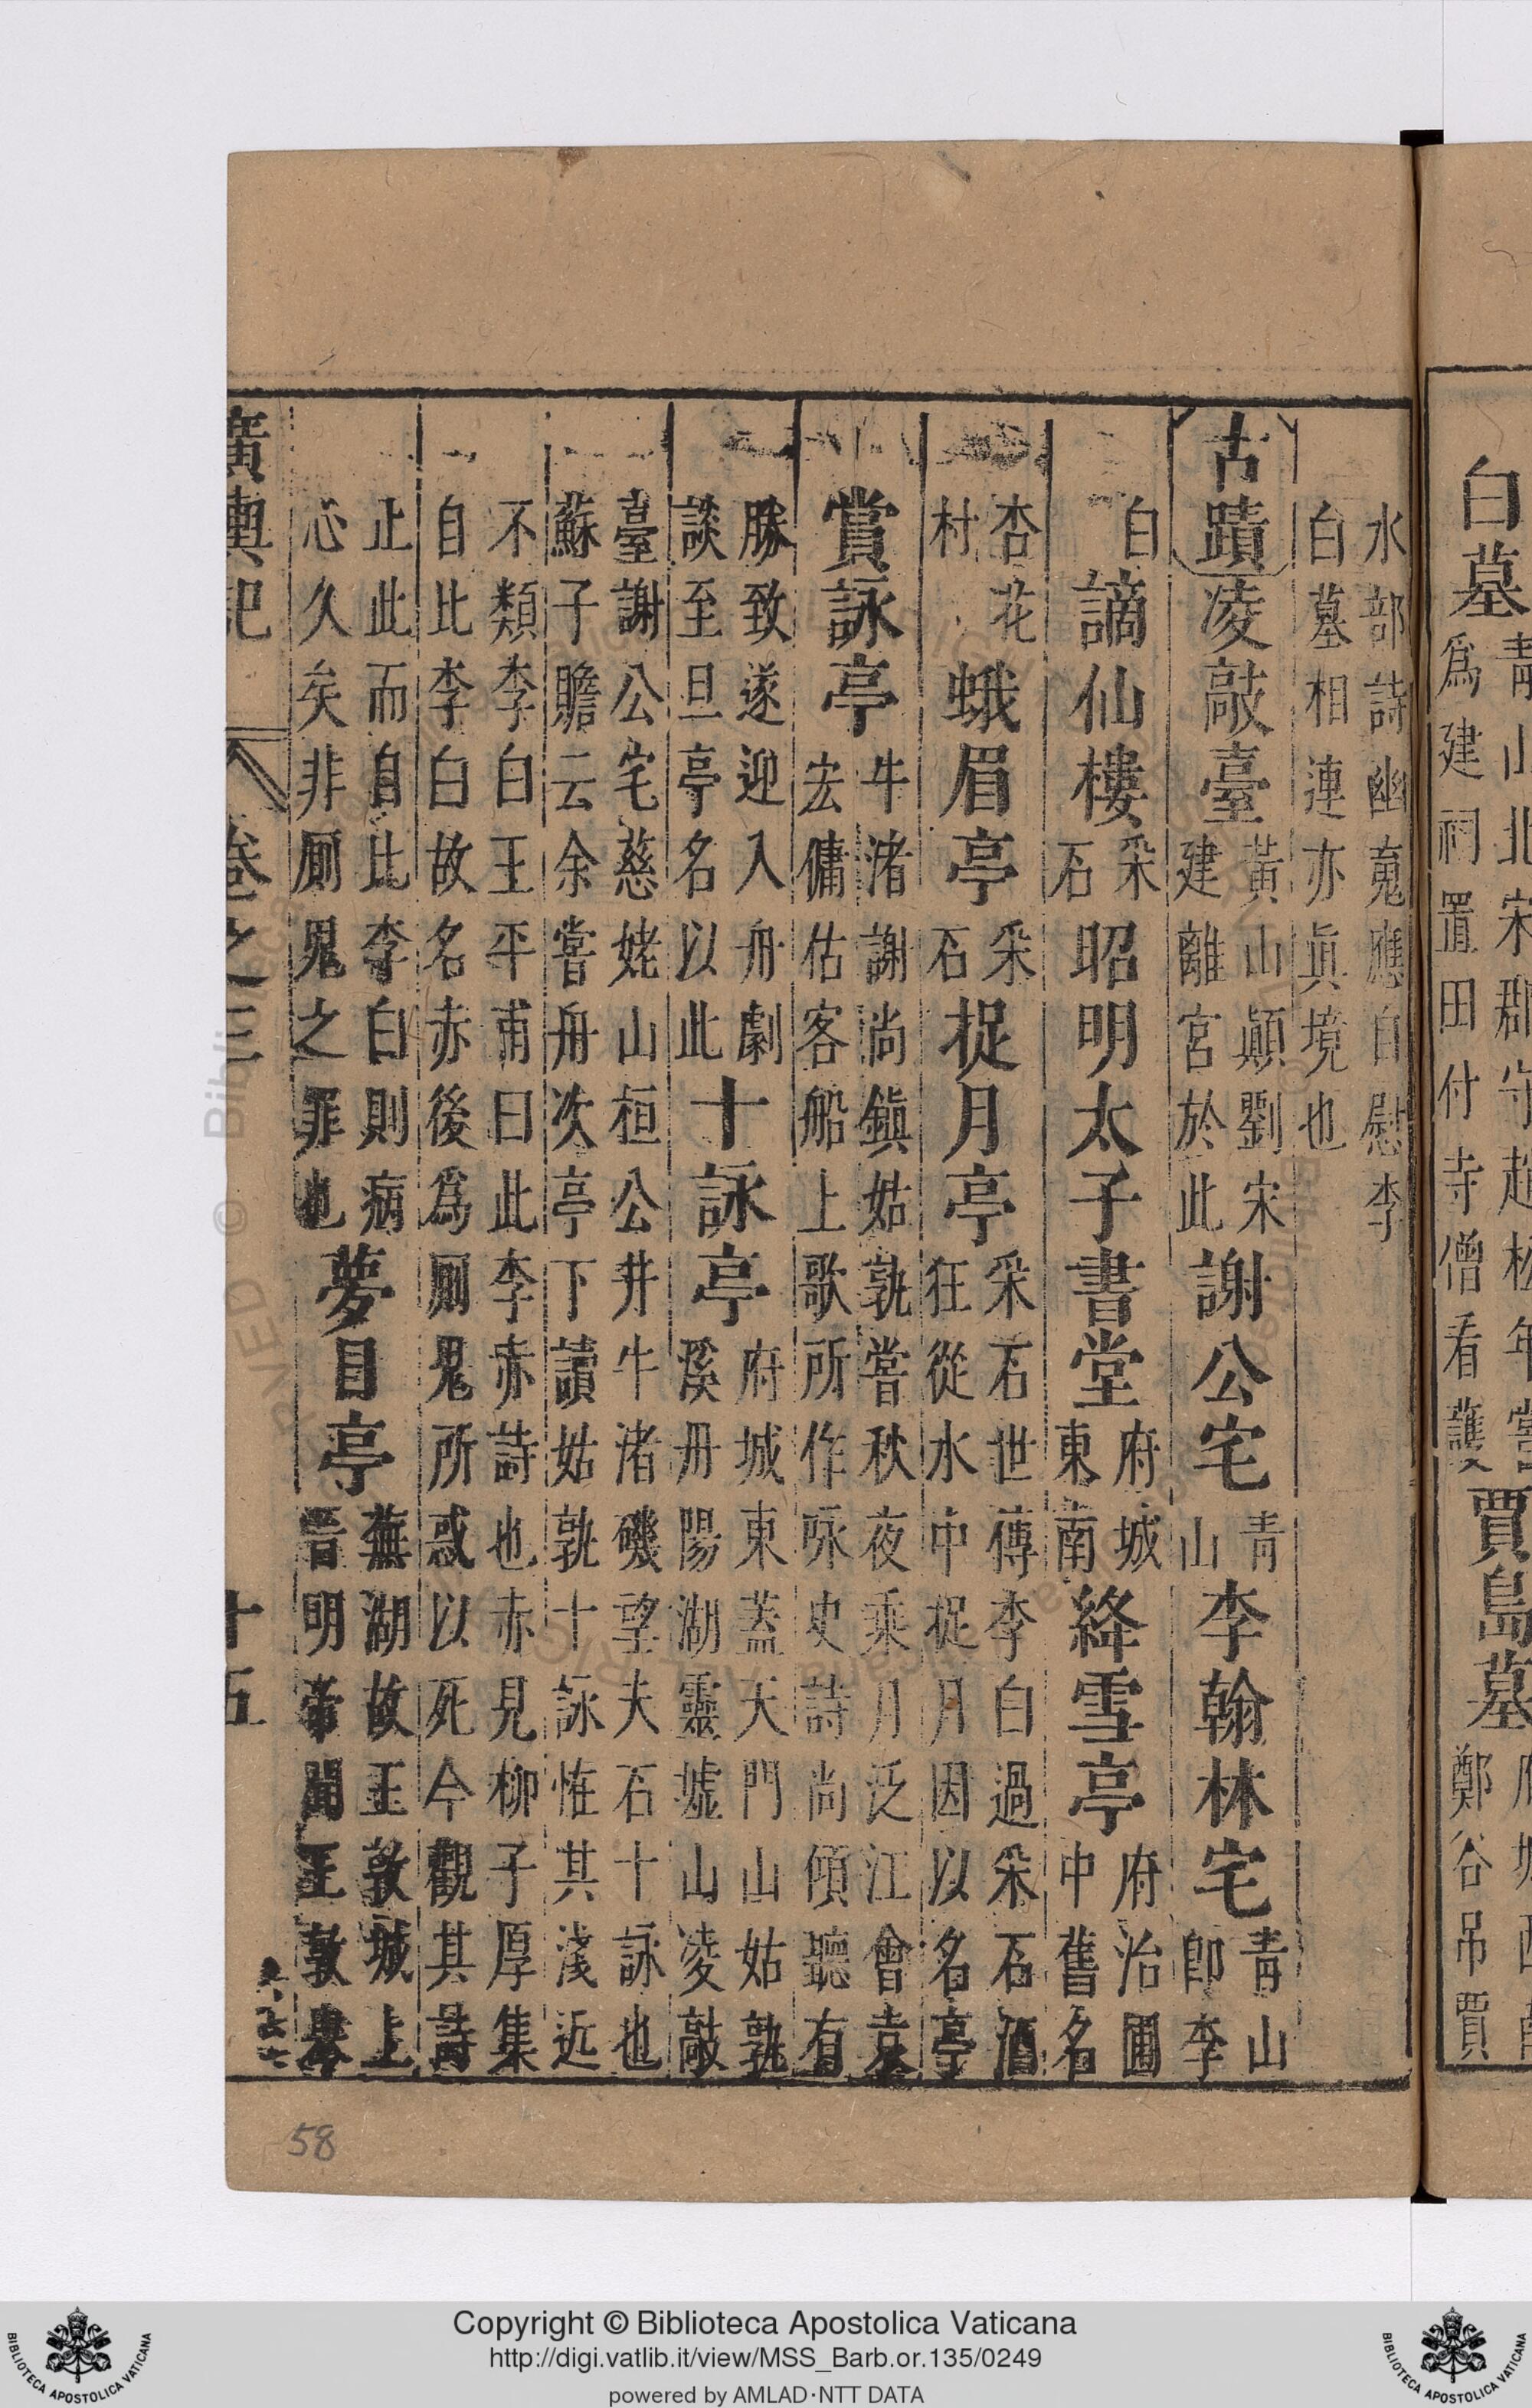 白墓青山北宋郡守趙松年嘗
爲建祠置田付寺僧看護
賈島墓
鄭谷吊賈
水部詩幽䰟應自慰李
白墓相連亦眞境也
古蹟凌歊臺黃山巔劉宋建離宮於此謝公宅青山李翰林宅青山卽李
白謫仙樓采石昭明太子書堂府城東南絳雪亭府治圃中舊名
杏花村蛾眉亭采石捉月亭采石世傳李白過采石酒狂從水中捉月因以名亭
賞詠亭牛渚謝尚鎮姑孰嘗秋夜乘月泛江會袁宏傭估客船上歌所作詠史詩尚傾聽有
勝致遂迎入舟劇談至旦亭名以此十詠亭府城東蓋天門山姑孰溪丹陽湖靈墟山凌歊
臺謝公宅慈姥山桓公井牛渚磯望夫石十詠也
蘇子瞻云余嘗舟次亭下讀姑孰十詠怪其淺近
不類李白王平甫曰此李赤詩也赤見柳子厚集
自比李白故名赤後爲厠鬼所惑以死今觀其詩
止此而自比李白則病心久矣非厠鬼之罪也夢日亭蕪湖故王敦城上晉明帝聞王敦舉
廣輿記 卷之三 十五
58
Copyright © Biblioteca Apostolica Vaticana
http://digi.vatlib.it/view/MSS_Barb.or.135/0249
powered by AMLAD·NTT DATA
BIBLIOTECA APOSTOLICA VATICANA
BIBLIOTECA APOSTOLICA VATICANA